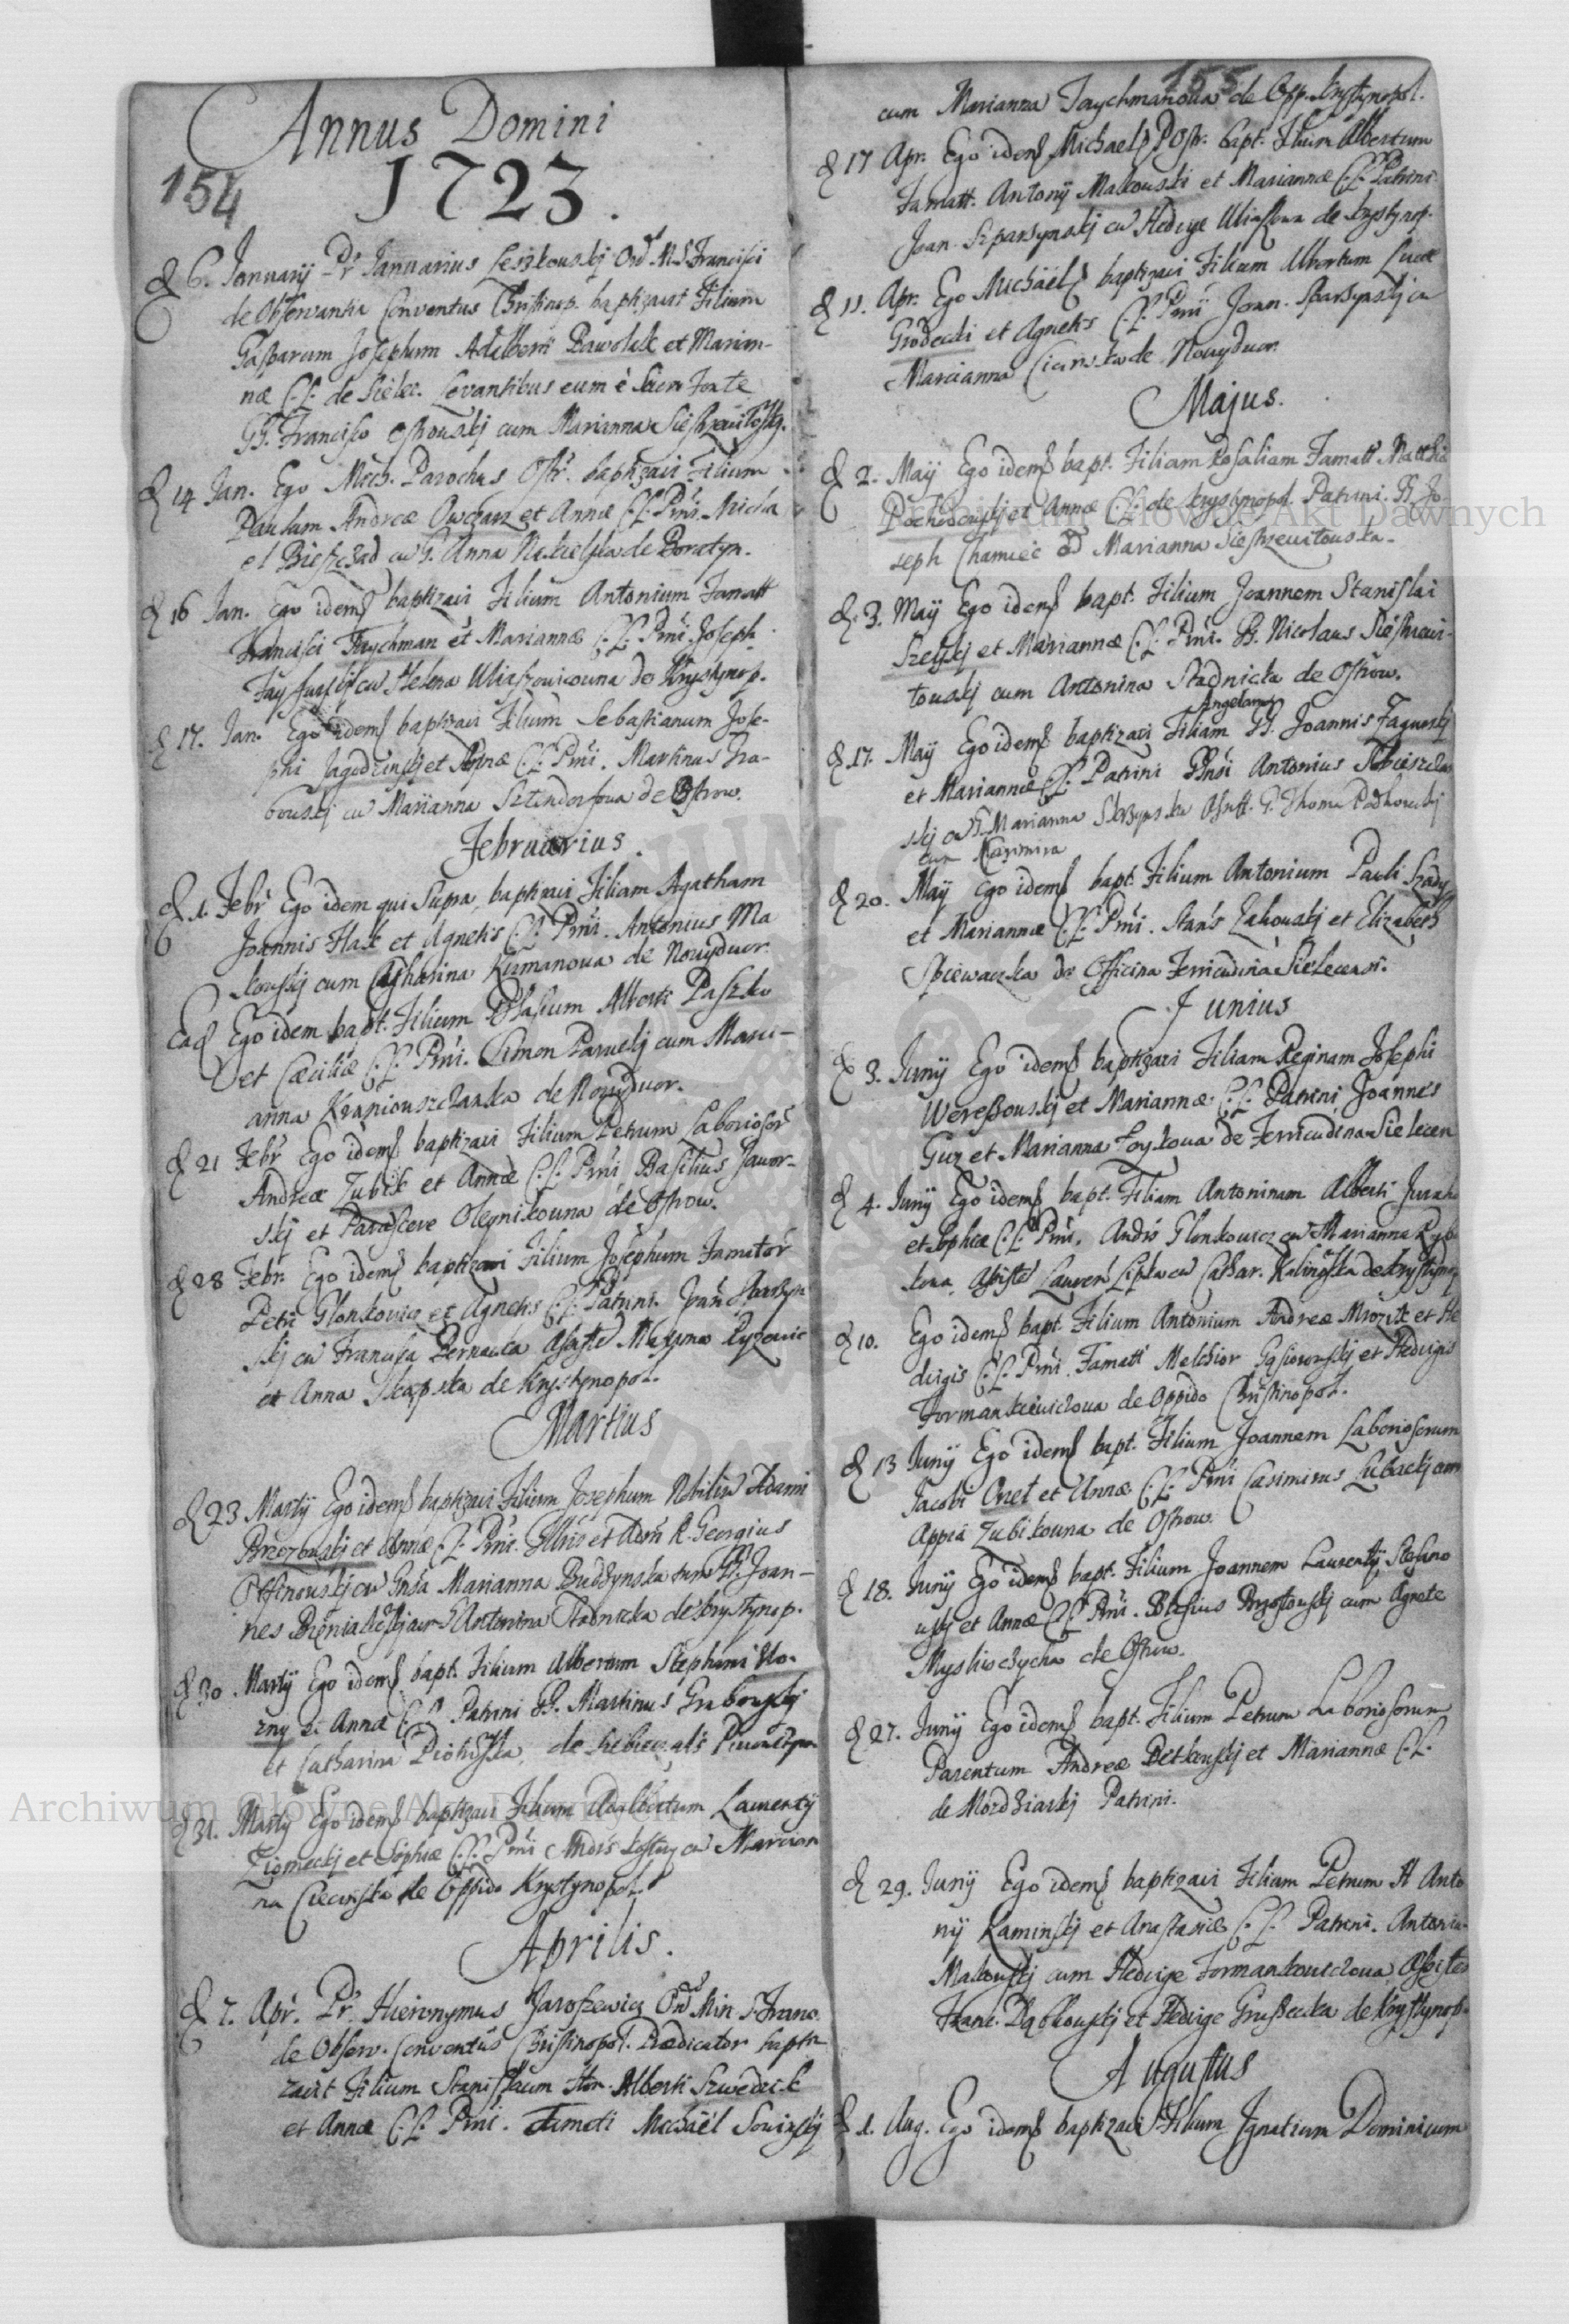 Annus Domini
154
1723.
d 6. Januarij Pr Januarius Leszkouskj Ord. M. S. Francisci
de Observantia Conventus Christinop. baptizavit Filium
Gasparum Josephum Adalberti Pawolak et Marian-
næ C.L. de Sielec. Levantibus eum è Sacro Fonte
GG. Francisco Ostrouskj cum Marianna
d 14 Jan. Ego Mich. Parochus Ostr. baptizavi Filium
Paulum Andreæ Owczarz et Annæ C.L. Prni. Micha
el Bieszczad cu G. Anna Nakielska de Boratyn.
d 16 Jan. Ego idem baptizavi Filium Antonium Famatt
Francisci Taychman et Mariannæ C.L. Prni. Joseph
cu Helena Uliaszouicouna de Krystynop.
d 17. Jan. Ego idem baptizavi Filium Sebastianum Jose-
phi Jagodzinskj et C.L. Prni. Martinus Gra-
bouskj cu Marianna Sztendorfoua de Ostrow.
Februarius.
d 1. Febr Ego idem qui Supra, baptizavi Filiam Agatham
Joannis Hask et Agnetis C.L. Prni. Antonius Ma
kouskj cum Catharina Kuzmanoua de Nouydwor.
Ead Ego idem bapt. Filium Blasium Alberti Paszko
et Cæciliæ C.L. Prni. Simon Paruskj cum Mari-
anna de Nouydwor.
d 21 Febr Ego idem baptizavi Filium Petrum Laboriosor
Andreæ Zubik et Annæ C.L. Prni Basilius Jawor-
skj et Parasceve Oleynikouna de Ostrow.
d 28 Febr. Ego idem baptizavi Filium Josephum Famator
Petri Glonkowicz et Agnetis C.L. Patrini. Joan
skj cu Francisca
et Anna de Krystynopol.
Martius
d 23 Martij Ego idem baptizavi Filium Josephum Nobiliu Adami
Brzozouskj et Annæ C.L. Prni. Illris et Adm R. Georgius
cu Gnsa Marianna Budzynska tum G. Joan-
nes cu G Antonina Stadnicka de Krystynop.
d 30 Martij Ego idem bapt. Filium Albertum Stephani Uo-
zny et Annæ C.L. Patrini G. Martinus Grabouskj
et Catharina de
d 31. Martij Ego idem baptizavi Filium Adalbertum Laurentij
Ziomeckj et Sophiæ C.L. Prni Andrs cu Marian
na Ciecierska de Oppido Krystynopol.
Aprilis.
d 7. Apr. Pr. Hieronymus Jaroszewicz Ord Min. S. Franc.
de Observ. Conventus Christinopol. Prædicator bapti
zavit Filium Stanislaum Hon. Alberti Szwedzik
et Annæ C.L. Prni. Famati Michäel Sowinskj
155
cum Marianna Taychmanoua de Opp. Krystynopol.
d 17 Apr. Ego idem Michael P Ostr. bapt. Filium Albertum
Famatt. Antonij Makouski et Mariannæ C.L. Patrini.
Joan. Szparzynskj cu Hedvige de Krystynop.
d 11. Apr. Ego Michäel baptizavi Filium Albertum Lucæ
Grodecki et Agnetis C.L. Prni Joan. Sparzynskj cu
Marcianna de Nouydwor.
Majus.
d 2. Maij Ego idem bapt. Filiam Rosaliam Famatt Matthiæ
et Annæ C.L. de Krystynopol. Patrini. G. Jo-
seph Chamiec Marianna
d 3. Maij Ego idem bapt. Filium Joannem Stanislai
et Mariannæ C.L. Prni. G. Nicolaus
touskj cum Antonina Stadnicka de Ostrow.
Angelam
d 17. Maij Ego idem baptizavi Filiam G. Joannis Zaguskj
et Mariannæ C.L. Patrini Gnsi Antonius
skj cu G. Marianna Skrzynska Assist. G. Thoma Podhoreckj
cum Casimira
d 20. Maij Ego idem bapt. Filium Antonium Pauli Szady
et Mariannæ C.L. Prni. Stans et Elizabeth
Spiewaczka de Officina Ferricudina Sielecensi.
Junius
d 3. Junij Ego idem baptizavi Filiam Reginam Josephi
Weressouskj et Mariannæ C.L. Patrini Joannes
Guz et Marianna de Ferricudina Sielecen
d 4. Junij Ego idem bapt. Filiam Antoninam Alberti
et Sophiæ C.L. Prni. Andrs Glonkowicz cu Marianna
Lauren Lipka cu Cathar. Kalinoska de Krystynop
d 10. Ego idem bapt. Filium Antonium Andreæ Mrozik et He
dvigis C.L. Prni. Famati Melchior Gąsiorouskj et Hedvigis
Formankieuiczoua de Oppido Christinopol.
d 13 Junij Ego idem bapt. Filium Joannem Laboriosorum
Jacobi Onet et Annæ C.L. Prni Casimirus Lubackj cum
Appia Zubikouna de Ostrow.
d 18. Junij Ego idem bapt. Filium Joannem Laurentij Stefano
uskj et Annæ C.L. Prni. Blasius cum Agnete
de Ostrow.
d 27. Junij Ego idem bapt. Filium Petrum Laboriosorum
Parentum Andreæ Petkouskj et Mariannæ C.L.
de Patrini.
d 29. Junij Ego idem baptizavi Filium Petrum H Anto
nij Kaminskj et Anastasiæ C.L. Patrini. Antoniu
Makouskj cum Hedvige Formankouiczoua Assisten
Franc. Dąbkouskj et Hedvige Gruszecka de Krystynop.
Augustus
d 1. Aug. Ego idem baptizavi Filium Ignatium Dominicum
Archiwum Główne Akt Dawnych
Archiwum Główne Akt Dawnych